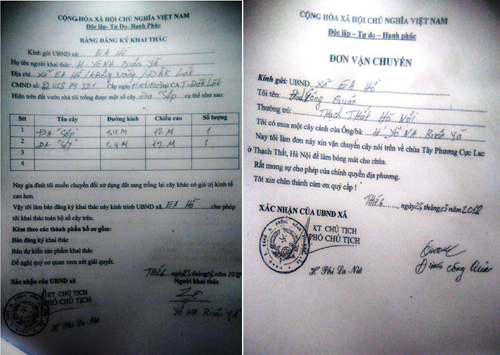 CỘNG HÒA XÃ HỘI CHỦ NGHĨA VIỆT NAM
Độc lập- Tự Do- Hạnh Phúc
BẢNG ĐĂNG KÝ KHAI THÁC
Kính gửi UBND xã EA HỒ
Họ tên người khai thác: H YONA Buôn Yă
Địa chỉ. Xã EA Hồ, Krông Năng, Đăk Lăk
CMND số: cấp ngày CA T. Đăk Lăk
Hiện trên đất vườn nhà tôi trồng được một số cây. Đa "Sộp" cụ thể như sau:
Stt Tên cây Đường kính Chiều cao Số lượng
1 ĐA "Sộp" 1,4 M 12 M 1
2 ĐA "Sộp" 1,4 M 12 M 1
3
4
Nay gia đình tôi muốn chuyển đổi sử dụng đất sang trồng lại cây khác có giá trị kinh tế cao hơn.
Vậy tôi làm bản đăng ký khai thác này kính trình UBND xã EA HỒ cho phép
tôi khai thác toàn bộ số cây trên.
Kèm theo các thành phần hồ sơ gồm:
Bản đăng ký khai thác
Bản dự kiến sản phẩm khai thác
Đề nghị quý cơ quan xem xét giải quyết.
ngày tháng năm 2018
Xác nhận của UBND xã
Người khai thác
KT CHỦ TỊCH
PHÓ CHỦ TỊCH
YONA Buôn Yă
CỘNG HÒA XÃ HỘI CHỦ NGHĨA VIỆT NAM
Độc lập – Tự do – Hạnh phúc
ĐƠN VẬN CHUYỂN
Kính gửi: UBND xã EA Hồ
Tôi tên: Công Quân
Thường trú: Thạch Thất Hà Nội
Tôi có mua một cây cảnh của Ông/bà: H YONA Buôn Yă
Nay tôi làm đơn này xin vận chuyển cây nói trên về chùa Tây Phương Cực Lac
ở Thạch Thất, Hà Nội để làm bóng mát cho chùa.
Rất mong sự cho phép của chính quyền địa phương.
Tôi xin chân thành cảm ơn quý cấp !
ngày tháng năm 2018
XÁC NHẬN CỦA UBND XÃ
KT CHỦ TỊCH
PHÓ CHỦ TỊCH
Công Quân